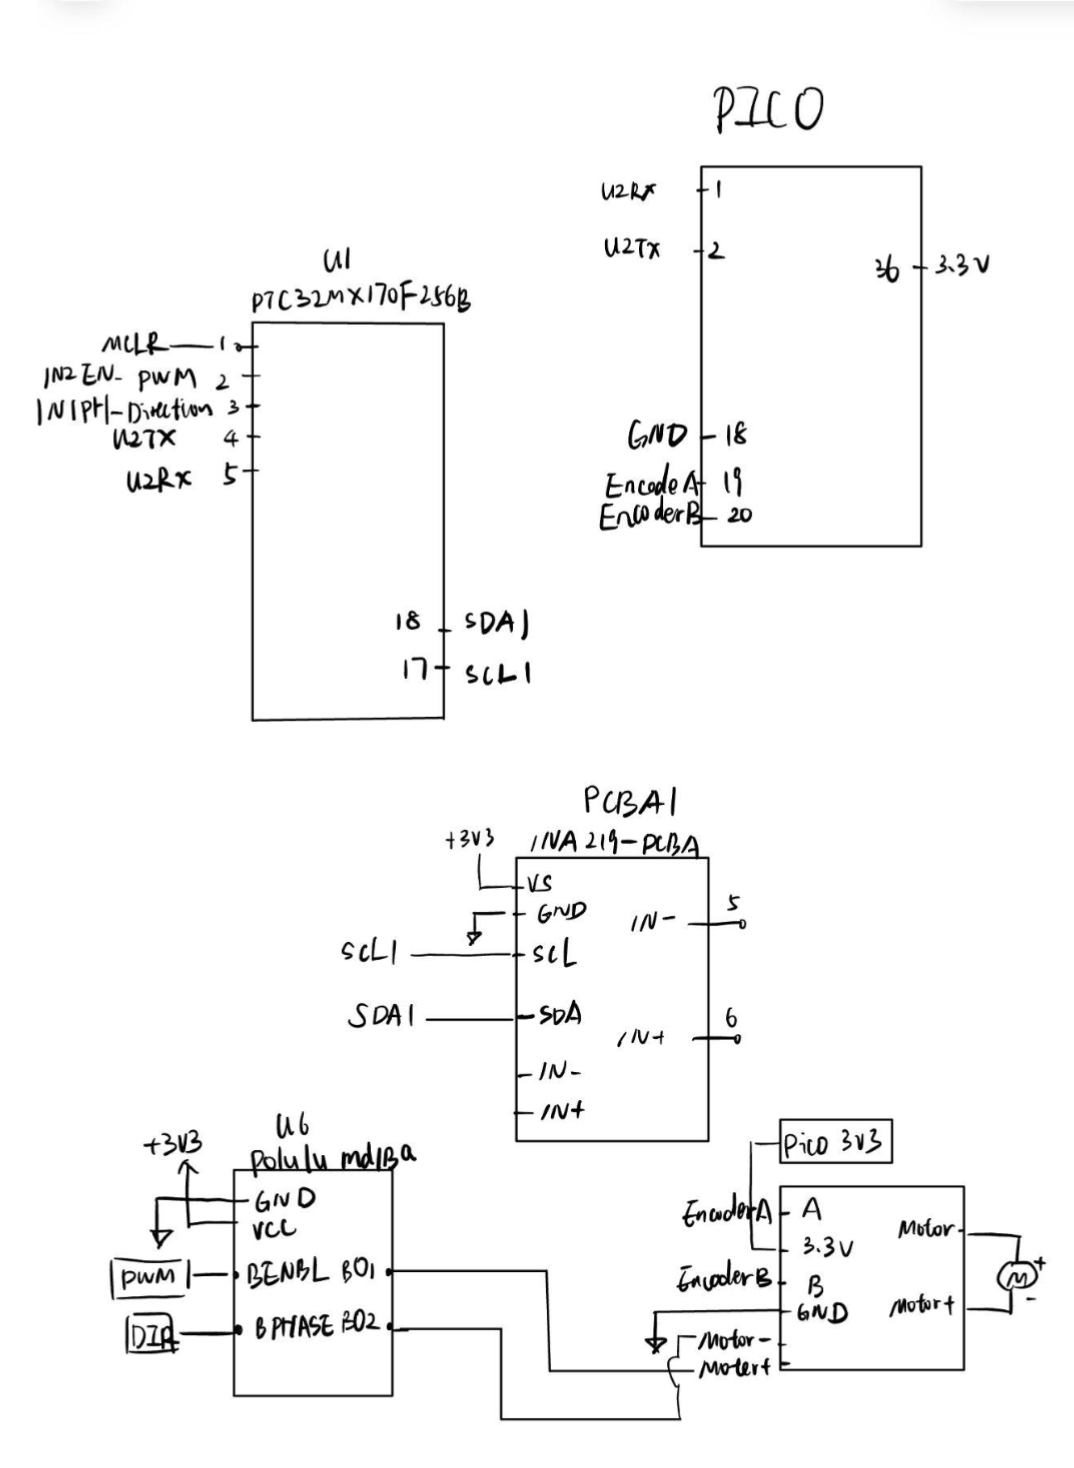 PICO
U2RX 1
U2TX 2
36 3.3V
GND 18
Encode A 19
Encoder B 20
U1
PIC32MX170F256B
MCLR 1
IN2 EN- PWM 2
IN1PH-Direction 3
U2TX 4
U2RX 5
18 SDA1
17 SCL1
PCBA1
INA219-PCBA
+3V3
VS
GND
IN- 5
SCL1 SCL
SDA1 SDA
IN+ 6
IN-
IN+
U6
Polulu md1Ba
+3V3
GND
VCC
PWM BENBL BO1
DIR BPHASE BO2
Pico 3V3
EncoderA A
Motor-
3.3V
M + -
EncoderB B
Motor+
GND
Motor-
Motert